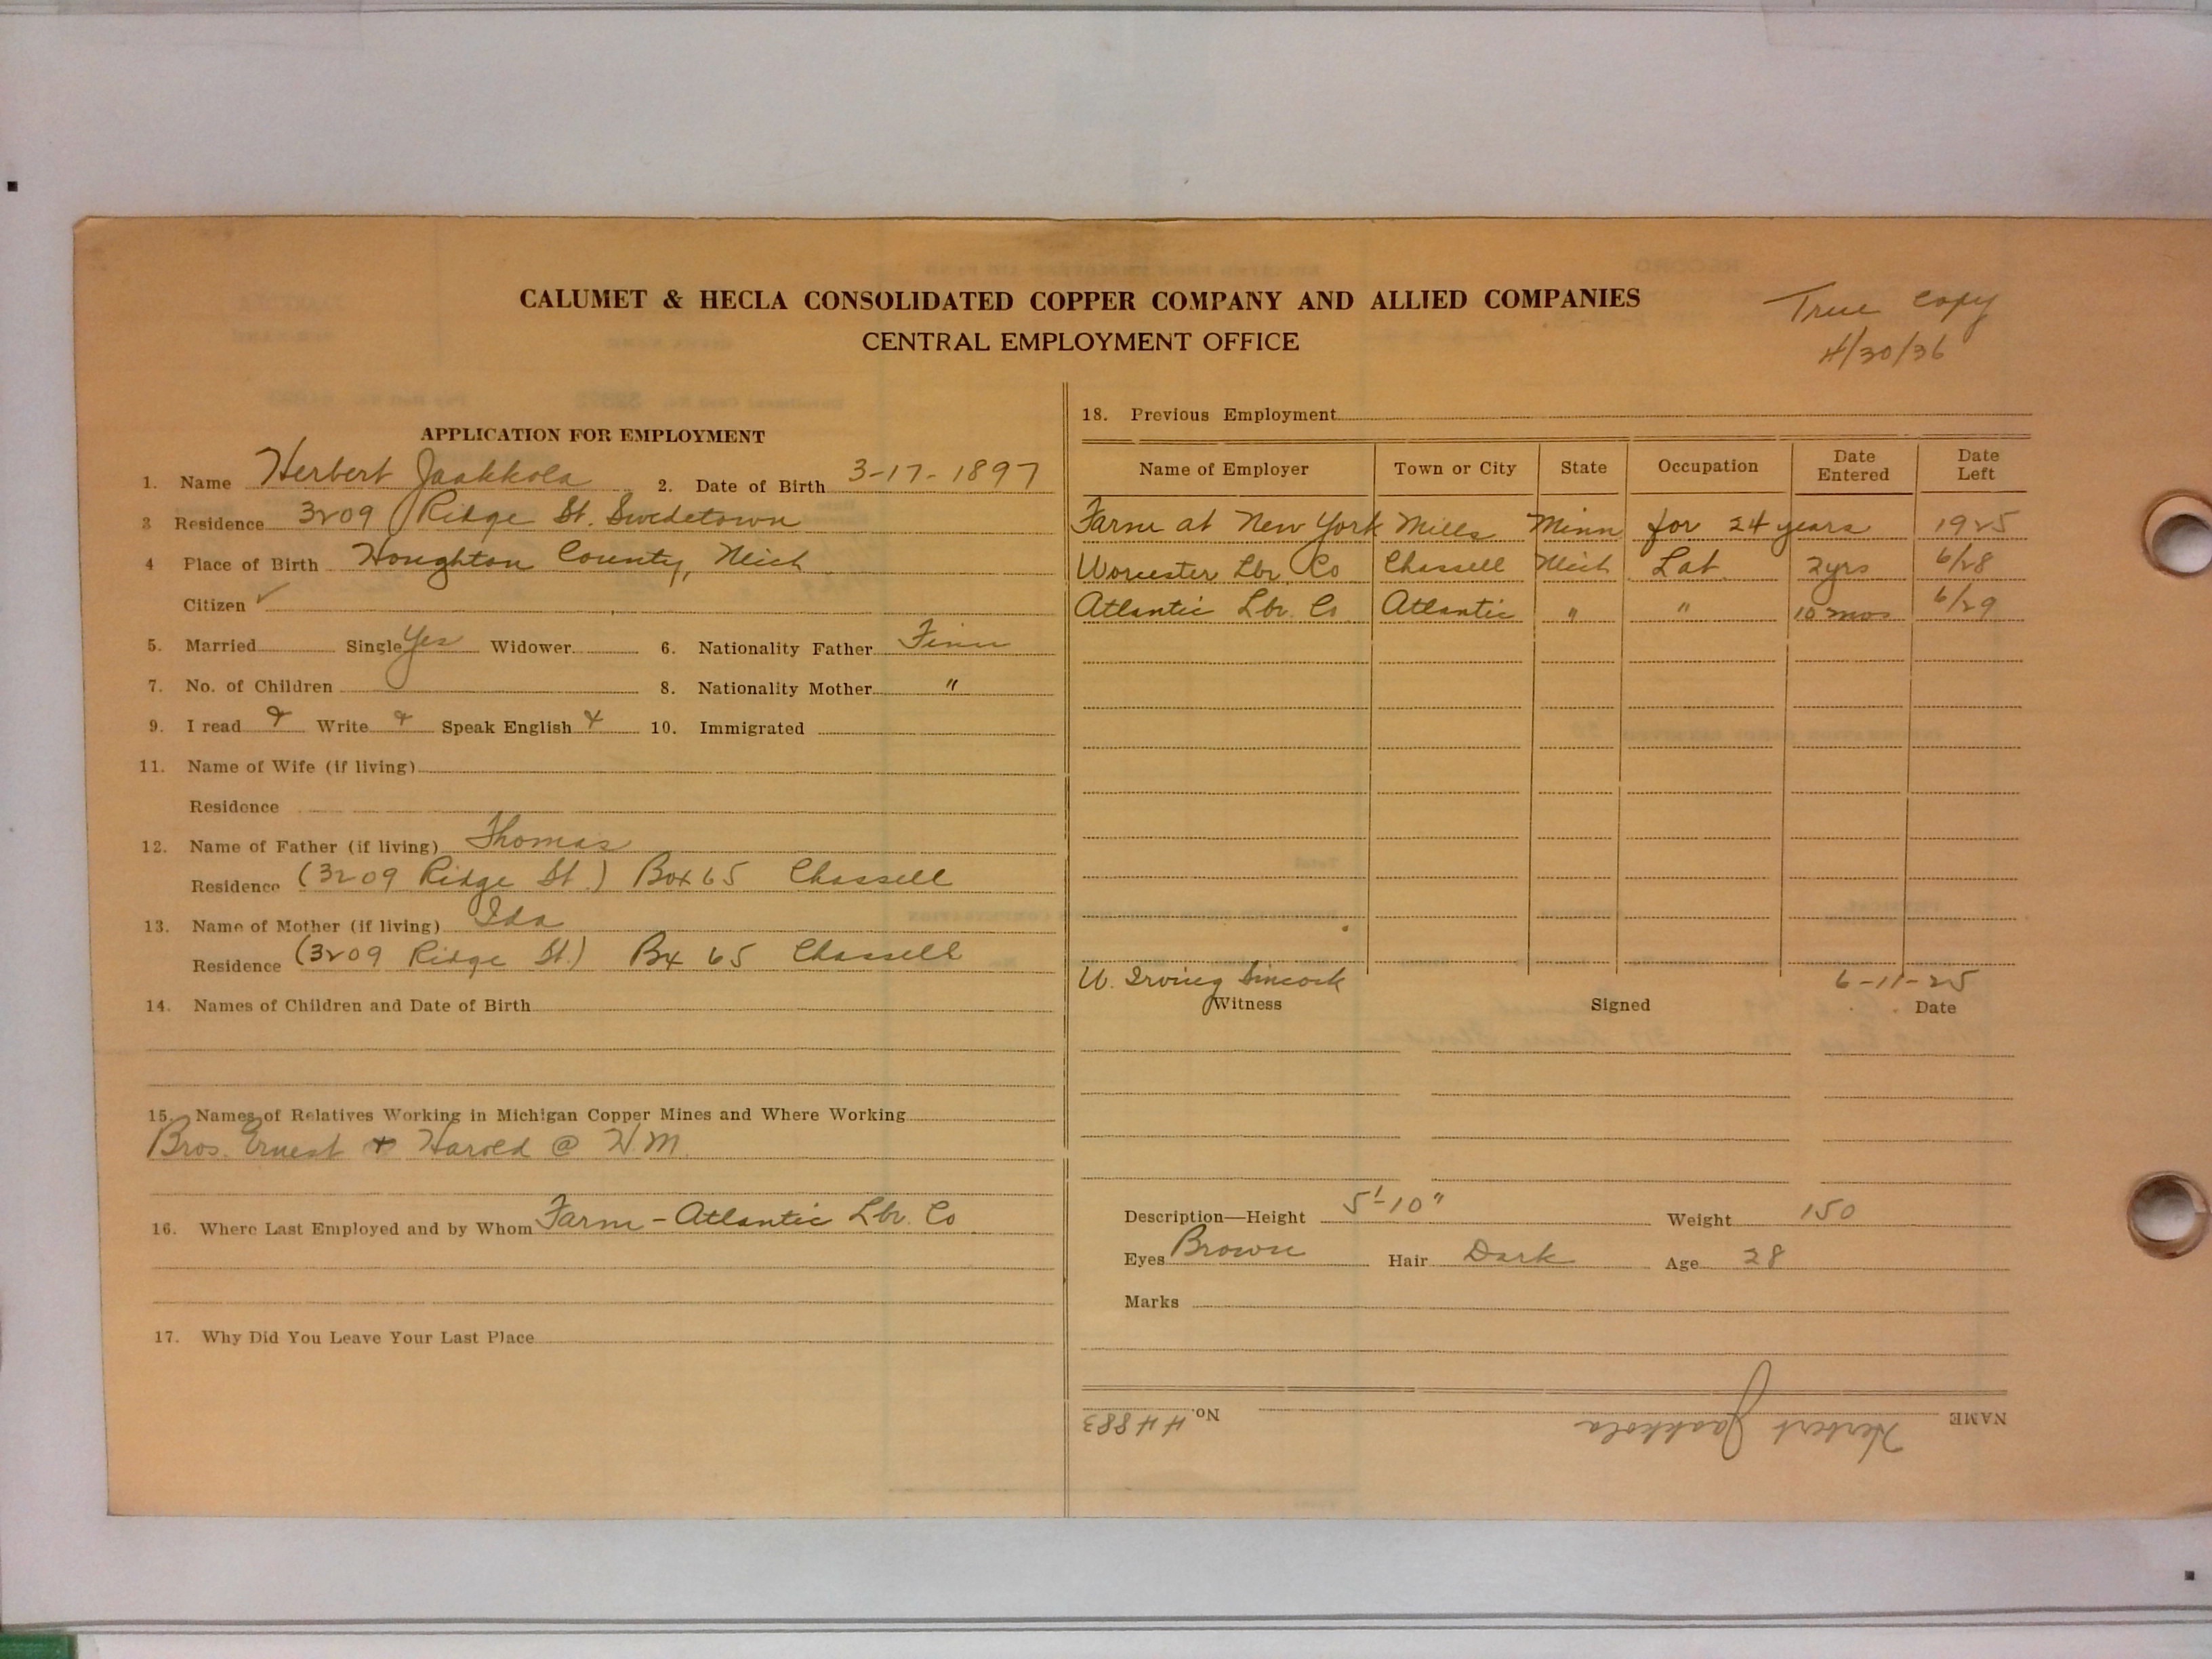 CALUMET & HECLA CONSOLIDATED COPPER COMPANY AND ALLIED COMPANIES
CENTRAL EMPLOYMENT OFFICE
True Copy
4/30/36
APPLICATION FOR EMPLOYMENT
1. Name Herbert Jaakkola 2. Date of Birth 3-17-1897
3 Residence 3209 Ridge St. Swedetown
4 Place of Birth Houghton County, Mich
Citizen ✓
5. Married Single Yes Widower 6. Nationality Father Finn
7. No. of Children 8. Nationality Mother "
9. I read Write Speak English 10. Immigrated
11. Name of Wife (if living)
Residence
12. Name of Father (if living) Thomas
Residence (3209 Ridge St.) Box 65 Chassell
13. Name of Mother (if living) Ida
Residence (3209 Ridge St.) Bx 65 Chassell
14. Names of Children and Date of Birth
15. Names of Relatives Working in Michigan Copper Mines and Where Working
Bros. Ernest & Harold @ H.M.
16. Where Last Employed and by Whom Farm - Atlantic Lbr. Co
17. Why Did You Leave Your Last Place
18. Previous Employment
Name of Employer Town or City State Occupation Date Entered Date Left
Farm at New York Mills Minn for 24 years 1925
Worcester Lbr. Co Chassell Mich Lab 2yrs 6/28
Atlantic Lbr. Co Atlantic " " 10 mos 6/29
W. Irving 6-11-25
Witness Signed Date
Description—Height 5'-10" Weight 150
Eyes Brown Hair Dark Age 28
Marks
NAME Herbert Jaakkola No. 44883